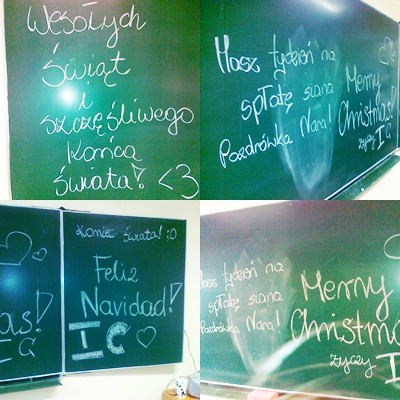 Wesołych
Świąt
i
szczęśliwego
końca
świata! <3
Masz tydzień na
spłatę siana
Pozdrówka Nara!
Merry
Christmas!
życzy
I C
as!
I C
Koniec świata! ;O
Feliz
Navidad!
IC
Masz tydzień na
spłatę siana
Pozdrówka Nara!
Merry
Christma
życzy I